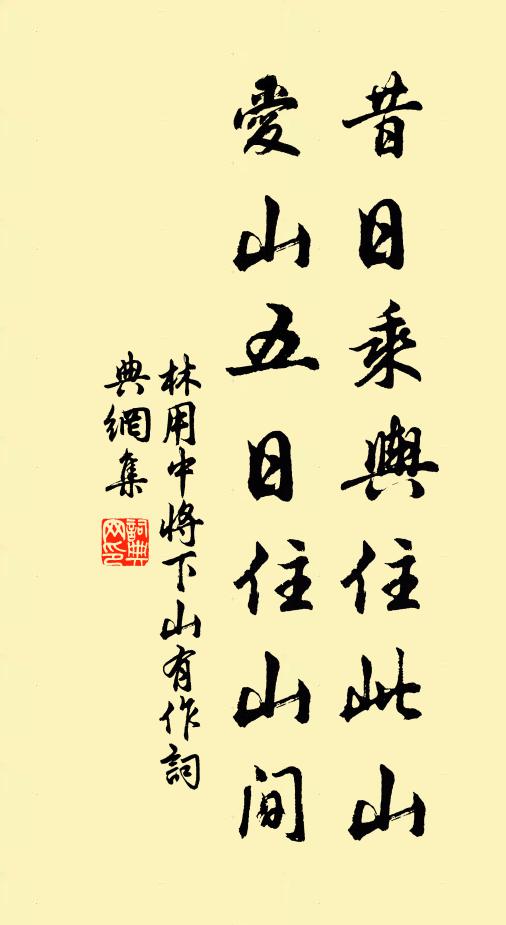 昔日乘輿住此山
愛山五日住山間
林用中將下山有作詞
典網集
詞典
网印